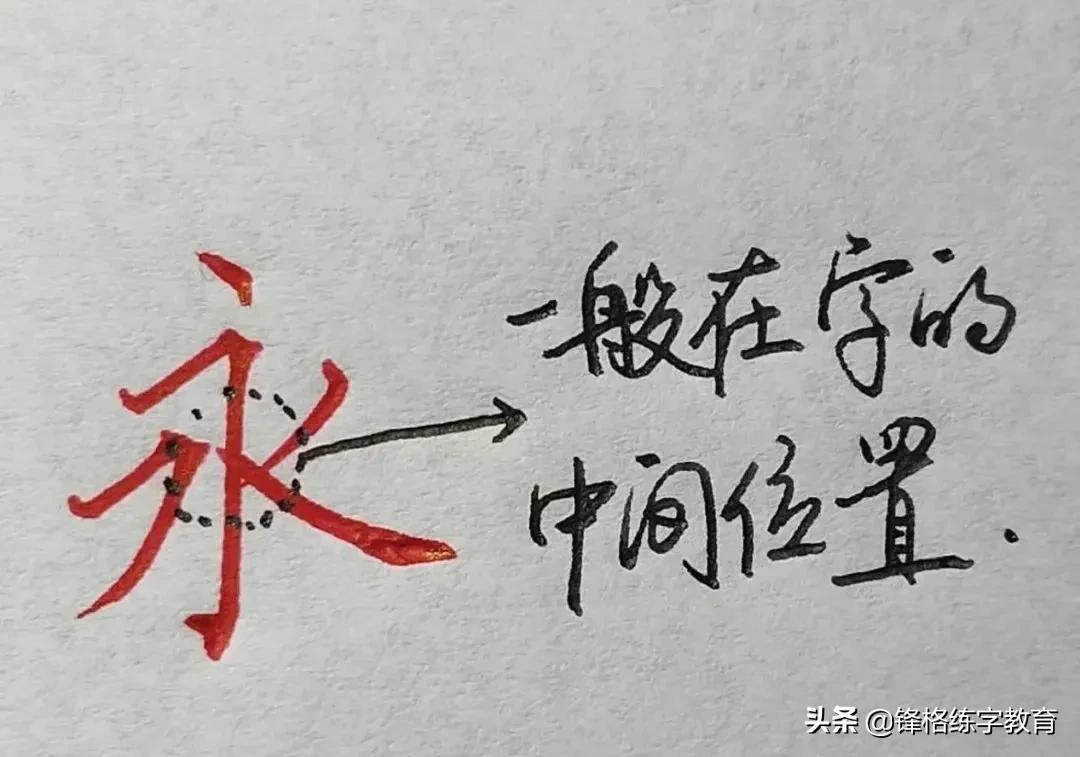 永
一般在字的
中间位置.
头条 @锋格练字教育